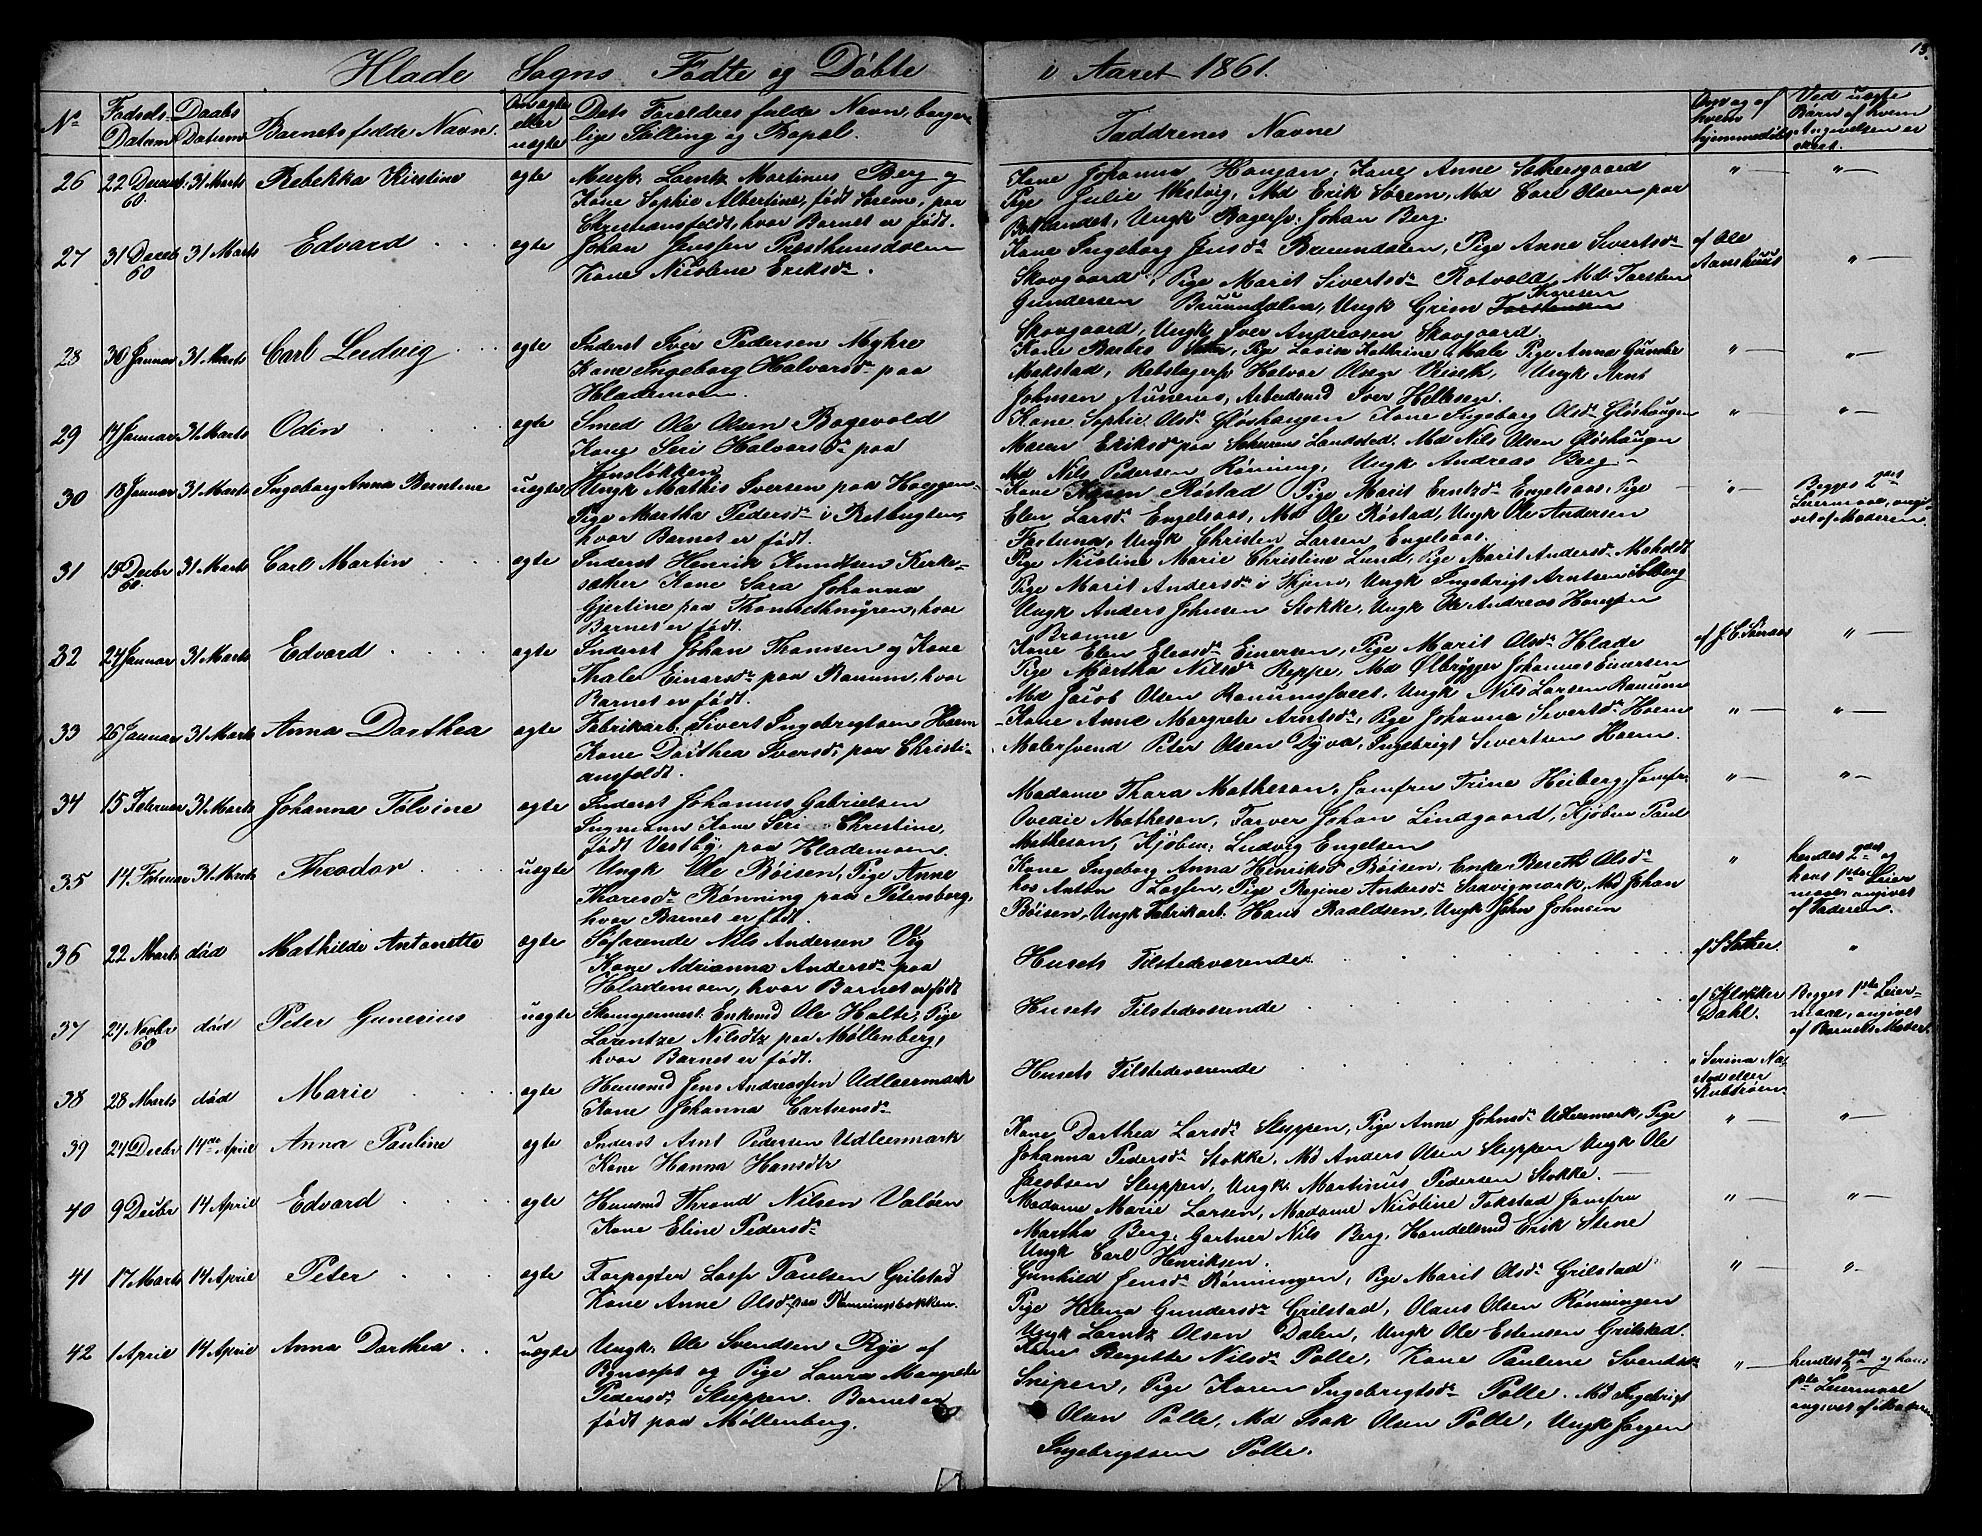 13.
Hlade Sogns Födte og Döbte i Aaret 1861.
No
Fødsels-
Datum
Daabs
Datum
Barnets fulde Navn.
Om ægte
eller
uægte
Dets Foreldres fulde Navn, borger-
lige Stilling og Bopæl.
Faddrenes Navne
Om og af
hvem
hjemmedøbt
Ved uægte
Børn af hvem
Angivelsen er
skeet.
26 22 Decemb. 60 31 Marts Rebekka Kirstine ægte
Martinus Berg og
Kone Sophie Albertine, født, paa
Christiansfeldt, hvor Barnet er født.
Kone Johanna Haugan, Kone Anne Sættersgaard
Pige Julie, Md Erik Sørem, Md Carl Olsen paa
Baklandet, Ungk Bagersv. Johan Berg.
" — " —
27 31 Decemb 60 31 Marts Edvard . . . ægte
Johan Jenssen Præsthuusdalen
Kone Nicoline Eriksdr.
Kone Ingeborg Jensdr Bruundalen, Pige Anne Sivertsdr
Skovgaard, Pige Marit Sivertsdr Rotvold, Md. Torsten
Gundersen Bruundalen, Ungk Grim Torstensen Thoresen
Skovgaard, Ungk Iver Andreasen Skovgaard.
af Ole
Aanshuus
" —
28 30 Januar 31 Marts Carl Ludvig . . ægte
Inderst Iver Pedersen Myhre
Kone Ingeborg Halvorsdr paa
Hlademoen.
Kone Barbro, Pige Lovise Kathrine Male Pige Anna Gunelie
Makstad, Rebslagersv Halvor Olsen, Ungk Arnt
Johnsen Aunerus, Arbeidsmd Iver Helksen.
" — " —
29 17 Januar 31 Marts Odin . . . ægte
Smed Ole Olsen Bagevold
Kone Siri Halvorsdr paa
Kone Sophie Olsdr Gløshaugen Kone Ingeborg Olsdr Gløshaugen
Maren Eriksdr paa Landsted. Md Nils Olsen Gløshaugen
Md Nils Pedersen Rønning, Ungk Andreas Berg —
" — " —
30 18 Januar 31 Marts Ingeborg Anna Berntine uægte
Ungk Mathis Iversen paa
Pige Martha Pedersdr i
hvor Barnet er født.
Kone Karen Røstad Pige Marit Erntsdr Engelsaas, Pige
Elen Larsdr Engelsaas, Md Ole Røstad, Ungk Ole Andersen
Fortuna, Ungk Christen Larsen Engelsaas.
" — Begges 2det
Leiermaal, angi-
vet af Moderen.
31 15 Decbr 60. 31 Marts Carl Martin . . ægte
Inderst Henrik Knudtsen Kirke-
søker Kone Sara Johanna
Gjertine paa Thomsethmyren, hvor
Barnet er født.
Pige Nicoline Marie Christine Lund, Pige Marit Andersdr Moholdt
Pige Marit Andersdr i Hjem, Ungk Ingebrigt Arntsen Solberg
Ungk Anders Johnsen Stokke, Ungk Ole Andreas Hansen
Brønne
32 24 Januar 31 Marts Edvard . . . . ægte
Inderst Johan Thomsen og Kone
Thale Einarsdr paa Ranum, hvor
Barnet er født.
Kone Elen Eleasdr Einersen, Pige Marit Olsdr Hlade
Pige Martha Nilsdr Reppe, Md Ølbrygger Johannes Einersen
Md Jacob Olsen Ranumsfaret, Ungk Nils Larsen Ranum
" —
33 26 Januar 31 Marts Anna Dorthea ægte
Fabrikarb. Sivert Ingebrigtsen Hoem
Kone Dorthea Iversdr paa Christi-
ansfeldt.
Kone Anne Margrete Arntsdr, Pige Johanna Sivertsdr Hoem
Malersvend Peter Olsen Dyva, Ingebrigt Sivertsen Hoem.
" — " —
34 15 Februar 31 Marts Johanna Tolvine ægte
Inderst Johannes Gabrielsen
Ingmann Kone Siri Christine,
født Vestby, paa Hlademoen.
Madame Thora Matheson, Jomfru Trine Heiberg, Jomfr.
Ovedie Matheson, Farver Johan Lindgaard, Kjøbm Paul
Matheson, Kjøbm. Ludvig Engelsen
" — " —
35 14 Februar 31 Marts Theodor . . uægte
Ungk Ole Böisen, Pige Anne
Thoresdr Rønning paa Petersborg,
hvor Barnet er født.
Kone Ingeborg Anna Henriksdr Böisen, Enke Bereth Olsdr
hos Anton Lossen, Pige Regine Andersdr Saxvigmark, Md Johan
Böisen, Ungk Fabrikarb. Hans Roaldsen, Ungk John Johnsen
" hendes 2det og
hans 1ste Leier-
maal, angivet
af Faderen.
36 22 Marts död Mathilde Antonette ægte
Søfarende Nils Andersen Vig
Kone Adrianna Andersdr paa
Hlademoen, hvor Barnet er født
Husets Tilstedeværende.
"
37 27 Novbr 60 död Peter Gunerius . . uægte
Enkemd Ole Holte, Pige
Lorentze Nilsdtr paa Møllenberg,
hvor Barnet er født.
Husets Tilstedeværende
af Klokker
Dahl.
Begges 1ste Leier-
maal, angivet
af Barnets Moder.
38 28 Marts död Marie . . ægte
Huusmd Jens Andreassen Udleermark
Kone Johanna
Husets Tilstedeværende
39 24 Decbr 14de April Anna Pauline . ægte
Inderst Arnt Pedersen Udleermark
Kone Hanna Hansdtr
Kone Dorthea Larsdr Sluppen, Pige Anne Johnsdr Udleermark, Pige
Johanna Pedersdr Stokke, Md Anders Olsen Sluppen Ungk Ole
Jacobsen Sluppen, Ungk. Martinus Pedersen Stokke. —
" — " —
40 9 Decbr 14 April Edvard . . . ægte
Huusmd Thrond Nilsen Valøen
Kone Eline Pedersdr
Madame Marie Larsen, Madame Nicoline Takstad Jomfru
Martha Berg, Gartner Nils Berg, Handelsmd Erik Stene
Ungk Carl Henriksen.
" — " —
41 17 Marts 14 April Peter . . . ægte
Forpagter Lasse Paulsen Grilstad
Kone Anne Olsdr paa Rønningsbakken.
Gunhild Jensdr Rønningen, Pige Marit Olsdr Grilstad
Pige Helena Gundersdr Grilstad, Olaus Olsen Rønningen
Ungk Lorntz Olsen Dalen, Ungk Ole Estensen Grilstad.
" — " —
42 1 April 14 April Anna Dorthea . . uægte
Ungk. Ole Svendsen Rye af
Bynæsset og Pige Laura Margrete
Pedersdr Sluppen. Barnet er
født paa Møllenberg.
Kone Bergitte Nilsdr Polle, Kone Pauline Svendsdr
Snipen, Pige Karen Ingebrigtsdr Polle. Md Ingebrigt
Olsen Polle, Md Isak Olsen Polle, Ungk Jørgen
Ingebrigtsen Polle.
" — hendes 2det og hans
1ste Leiermaal
angivet af Moderen.